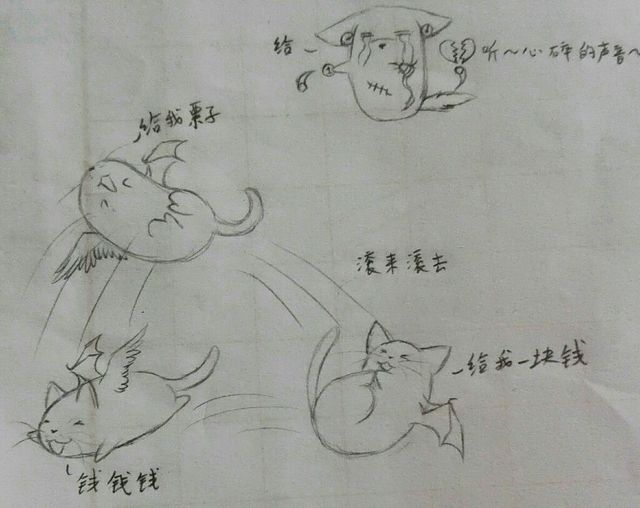 给
听～心碎的声音～
给我栗子
滚来滚去
给我一块钱
钱钱钱